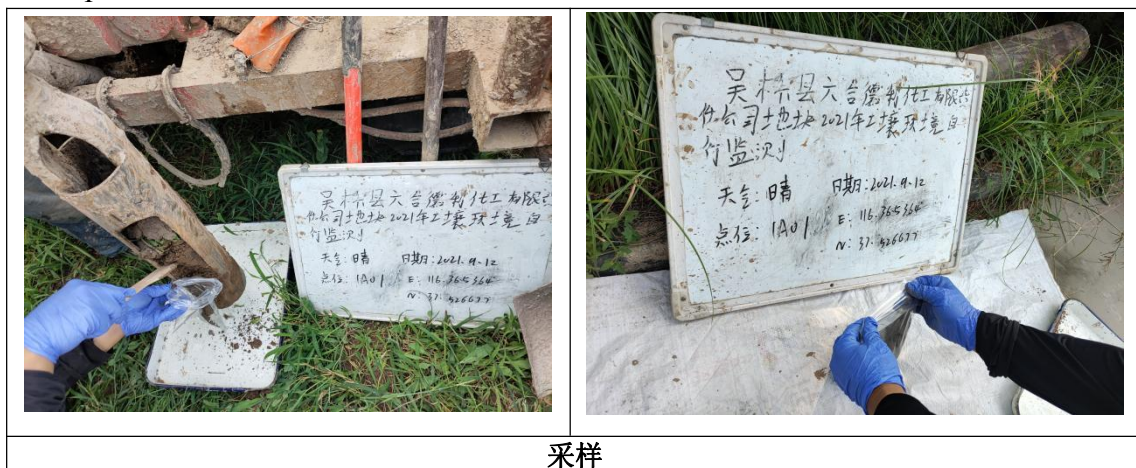 吴桥县六合德利化工有限责
任公司地块2021年土壤环境自
行监测
天气:晴 日期:2021.9.12
点位:1A01 E:
N:37.526677
吴桥县六合德利化工有限责
任公司地块2021年土壤环境自
行监测
天气:晴 日期:2021.9.12
点位:1A01 E:
N:37.526677
采样